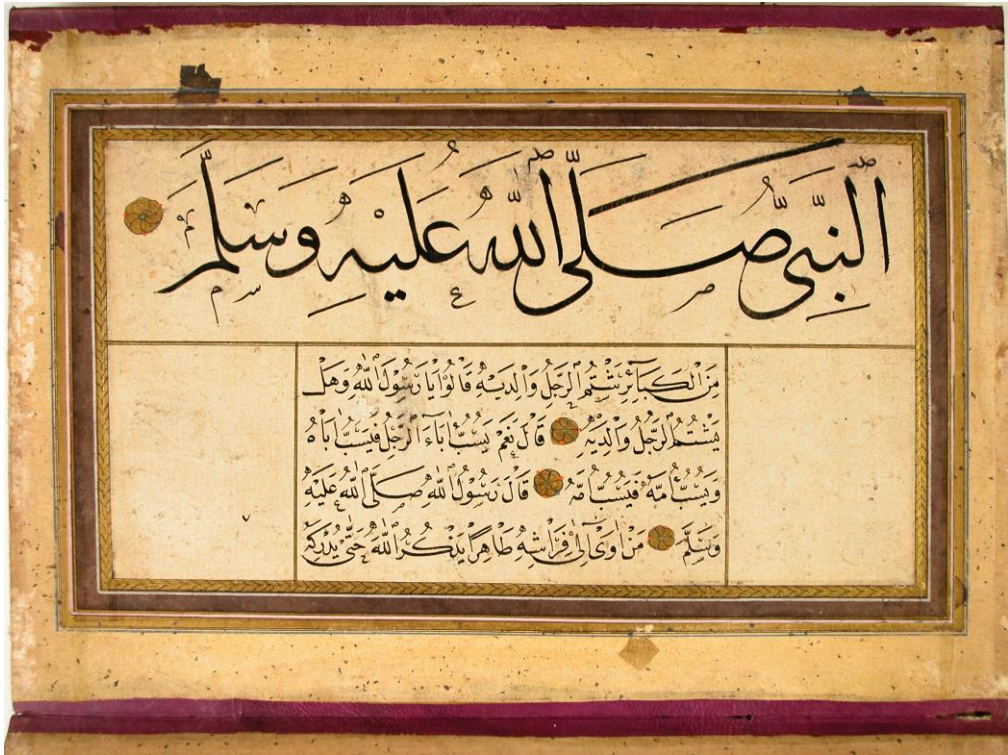 النَّبِيِّ صَلَّى اللّٰهُ عَلَيْهِ وَسَلَّمَ
مِنَ الْكَبَآئِرِ شَتْمُ الرَّجُلِ وَالِدَيْهِ قَالُوا يَا رَسُولَ اللّٰهِ وَهَلْ
يَشْتُمُ الرَّجُلُ وَالِدَيْهِ قَالَ نَعَمْ يَسُبُّ اَبَاءَ الرَّجُلِ فَيَسُبُّ اَبَاهُ
وَيَسُبُّ اُمَّهُ فَيَسُبُّ اُمَّهُ قَالَ رَسُولُ اللّٰهِ صَلَّى اللّٰهُ عَلَيْهِ
وَسَلَّمَ مَنْ اَوٰى اِلٰى فِرَاشِهِ طَاهِرًا يَذْكُرُ اللّٰهَ حَتّٰى يُدْرِكَهُ